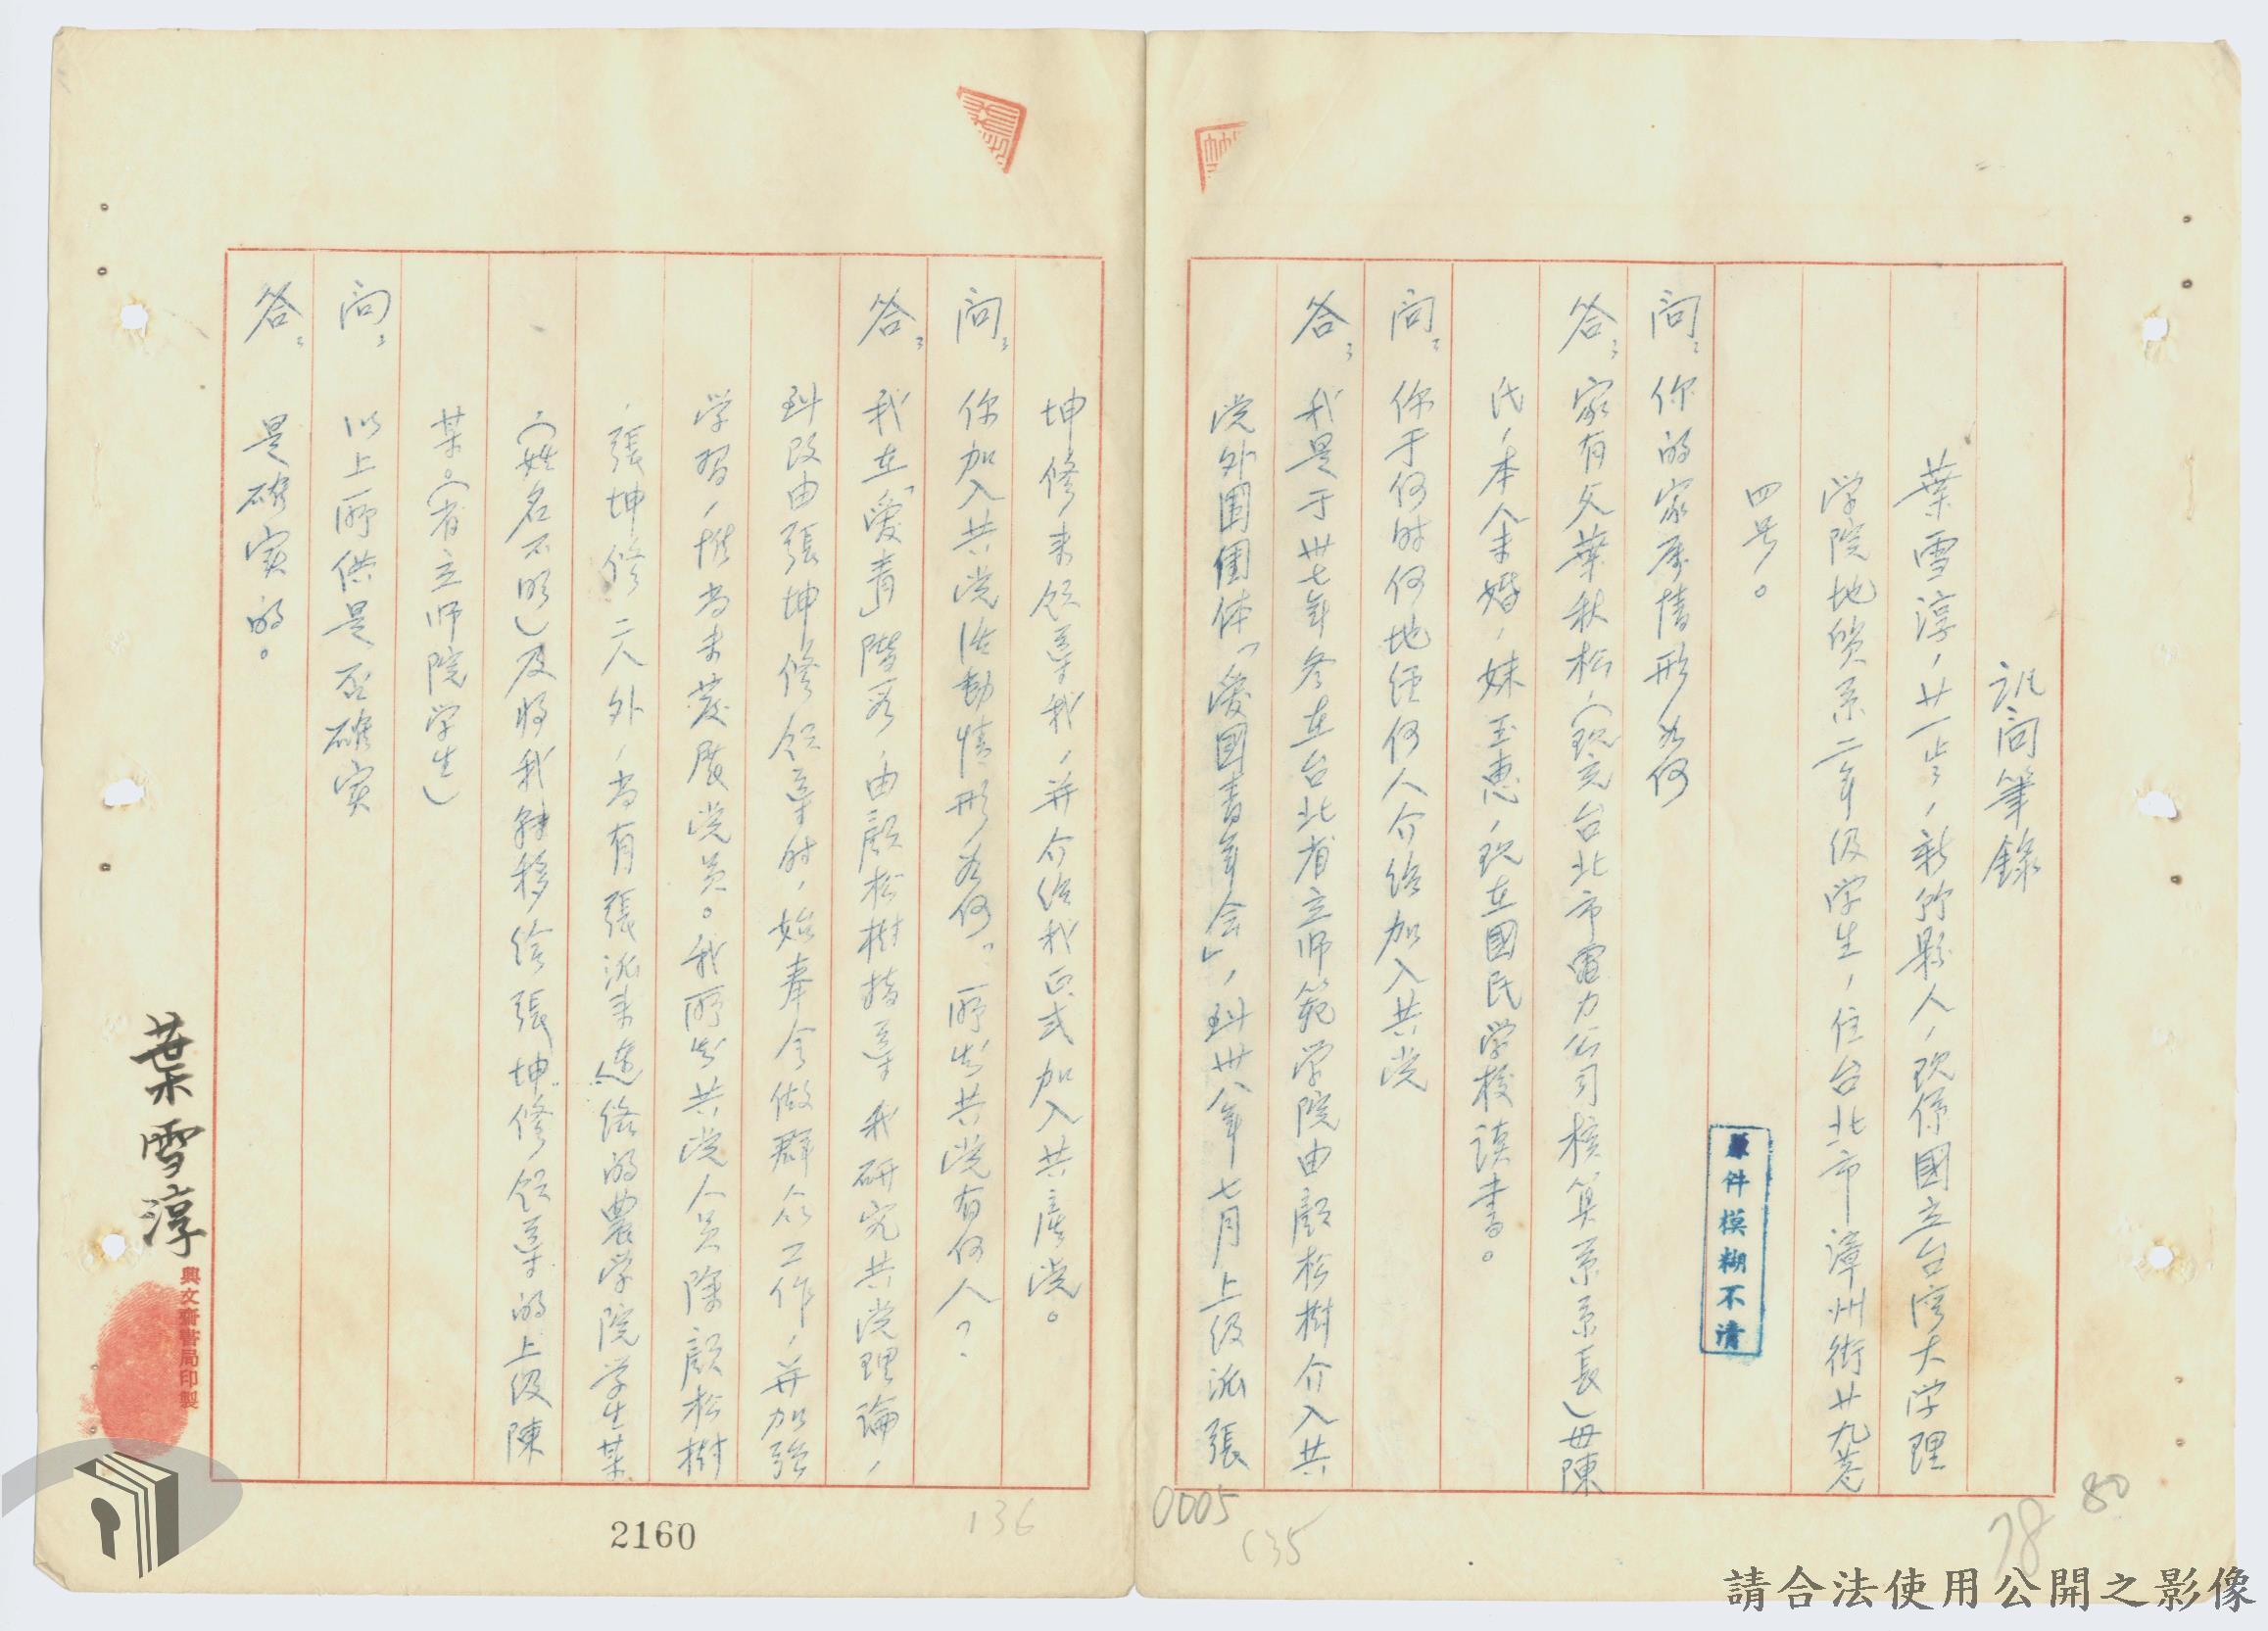 訊问筆錄
葉雪淳，廿一歲，新竹縣人，現係國立台湾大学理
学院地質系二年级学生，住台北市漳州街廿九巷
四号。
问：你的家庭情形如何
答：家有父葉秋松，（現充台北市電力公司核算系系長）母陳
氏，本人未婚，妹玉惠，現在國民学校讀書。
问：你于何时何地经何人介绍加入共党
答：我是于卅七年冬在台北省立师範学院由顏松樹介入共
党外围团体「愛國青年会」，到卅八年七月上级派張
坤修来领導我，并介绍我正式加入共產党。
问：你加入共党活動情形为何？所知共党有何人？
答：我在「愛青」階段，由顏松樹指導我研究共党理論，
到改由張坤修领導时，始奉令做群众工作，并加强
学習，惟尚未發展党员。我所知共党人员除顏松樹
，張坤修二人外，尚有張派来連络的農学院学生某
（姓名不明）及将我轉移给張坤修领導的上级陳
某。（省立师院学生）
问：以上所供是否確实
答：是確实的。
葉雪淳
興文齋書局印製
原件模糊不清
2160
136
0005
135
78
80
請合法使用公開之影像